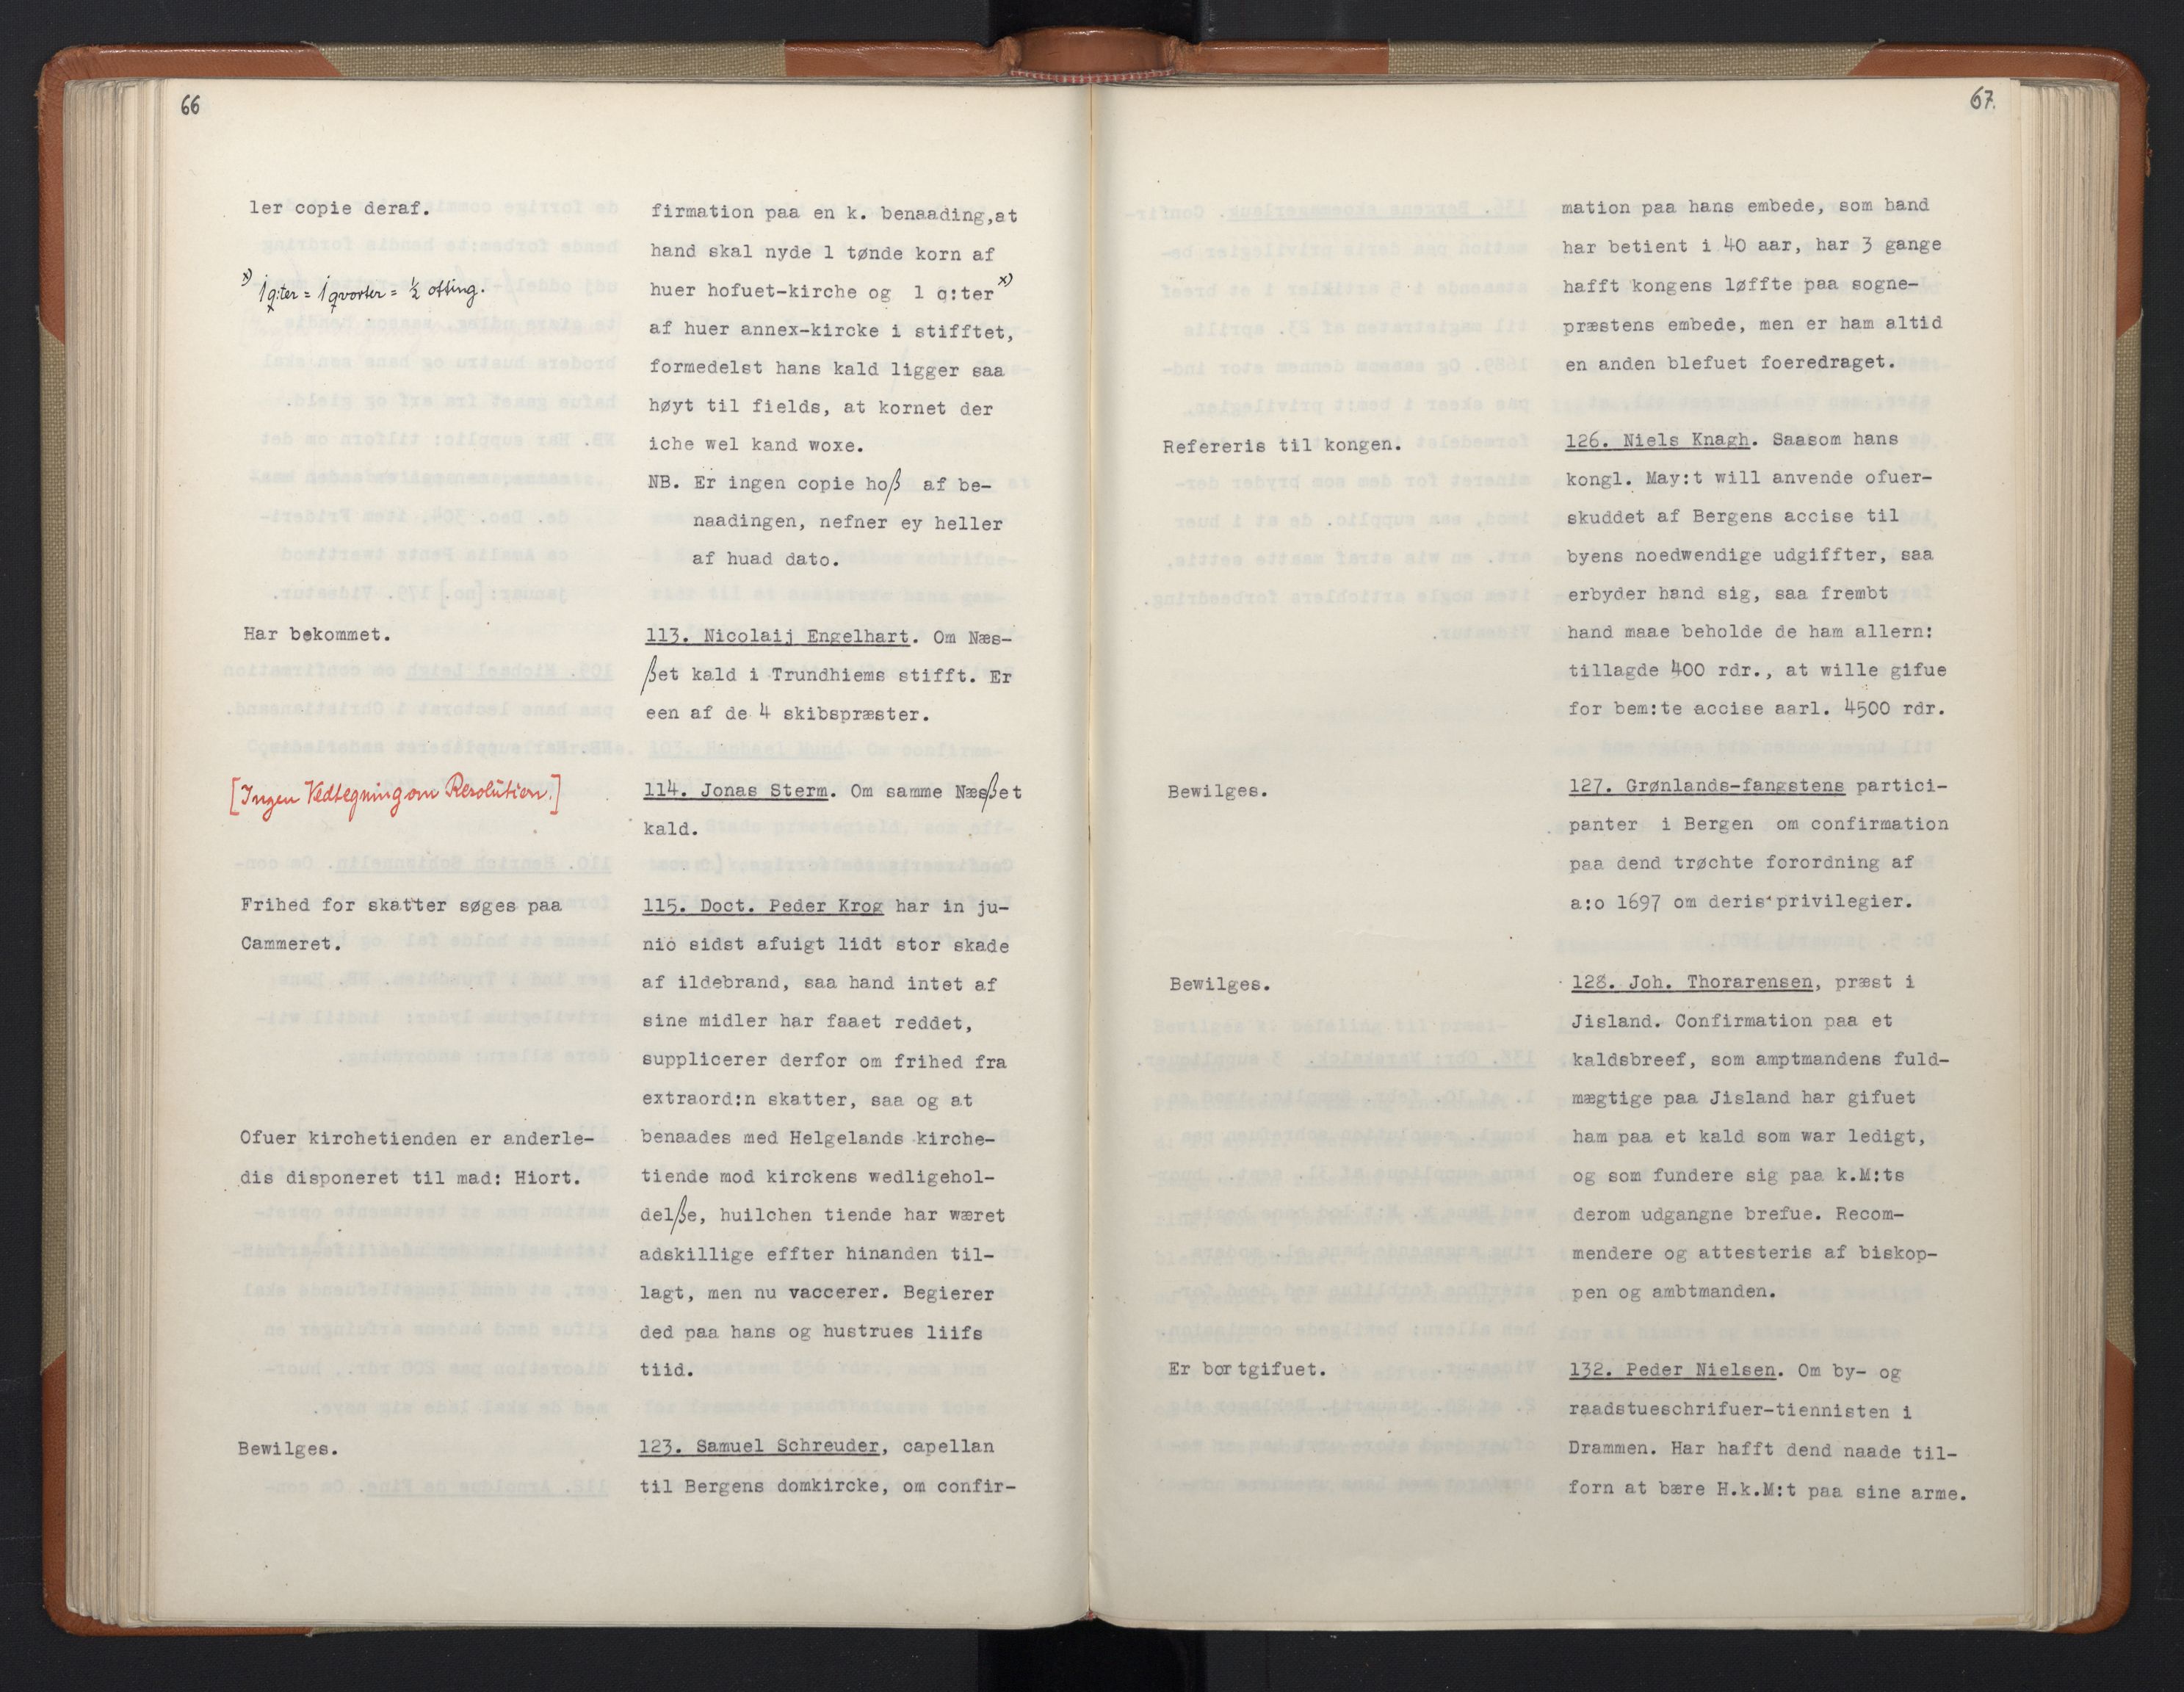 66
ler copie deraf.
x) 1 q:ter = 1 qvorter = ½ otting.
firmation paa en k. benaading,at
hand skal nyde 1 tønde korn af
huer hofuet-kirche og 1 q:ter x)
af huer annex-kircke i stifftet,
formedelst hans kald ligger saa
høyt til fields, at kornet der
iche wel kand woxe.
NB. Er ingen copie hoß af be-
naadingen, nefner ey heller
af huad dato.
Har bekommet.
113. Nicolaij Engelhart. Om Næs-
ßet kald i Trundhiems stifft. Er
een af de 4 skibspræster.
[Ingen Vedtegning om Resolution.]
114. Jonas Sterm. Om samme Næsßet
kald.
Frihed for skatter søges paa
Cammeret.
Ofuer kirchetienden er anderle-
dis disponeret til mad: Hiort.
115. Doct. Peder Krog har in ju-
nio sidst afuigt lidt stor skade
af ildebrand, saa hand intet af
sine midler har faaet reddet,
supplicerer derfor om frihed fra
extraord:n skatter, saa og at
benaades med Helgelands kirche-
tiende mod kirckens wedligehol-
delße, huilchen tiende har wæret
adskillige effter hinanden til-
lagt, men nu vaccerer. Begierer
ded paa hans og hustrues liifs
tiid.
Bewilges.
123. Samuel Schreuder, capellan
til Bergens domkircke, om confir-
67.
mation paa hans embede, som hand
har betient i 40 aar, har 3 gange
hafft kongens løffte paa sogne-
præstens embede, men er ham altid
en anden blefuet foeredraget.
Refereris til kongen.
126. Niels Knagh. Saasom hans
kongl. May:t will anvende ofuer-
skuddet af Bergens accise til
byens noedwendige udgiffter, saa
erbyder hand sig, saa frembt
hand maae beholde de ham allern:
tillagde 400 rdr., at wille gifue
for bem:te accise aarl. 4500 rdr.
Bewilges.
127. Grønlands-fangstens partici-
panter i Bergen om confirmation
paa dend trøchte forordning af
a:o 1697 om deris privilegier.
Bewilges.
128. Joh. Thorarensen, præst i
Jisland. Confirmation paa et
kaldsbreef, som amptmandens fuld-
mægtige paa Jisland har gifuet
ham paa et kald som war ledigt,
og som fundere sig paa k.M:ts
derom udgangne brefue. Recom-
mendere og attesteris af biskop-
pen og ambtmanden.
Er bortgifuet.
132. Peder Nielsen. Om by- og
raadstueschrifuer-tiennisten i
Drammen. Har hafft dend naade til-
forn at bære H.k.M:t paa sine arme.